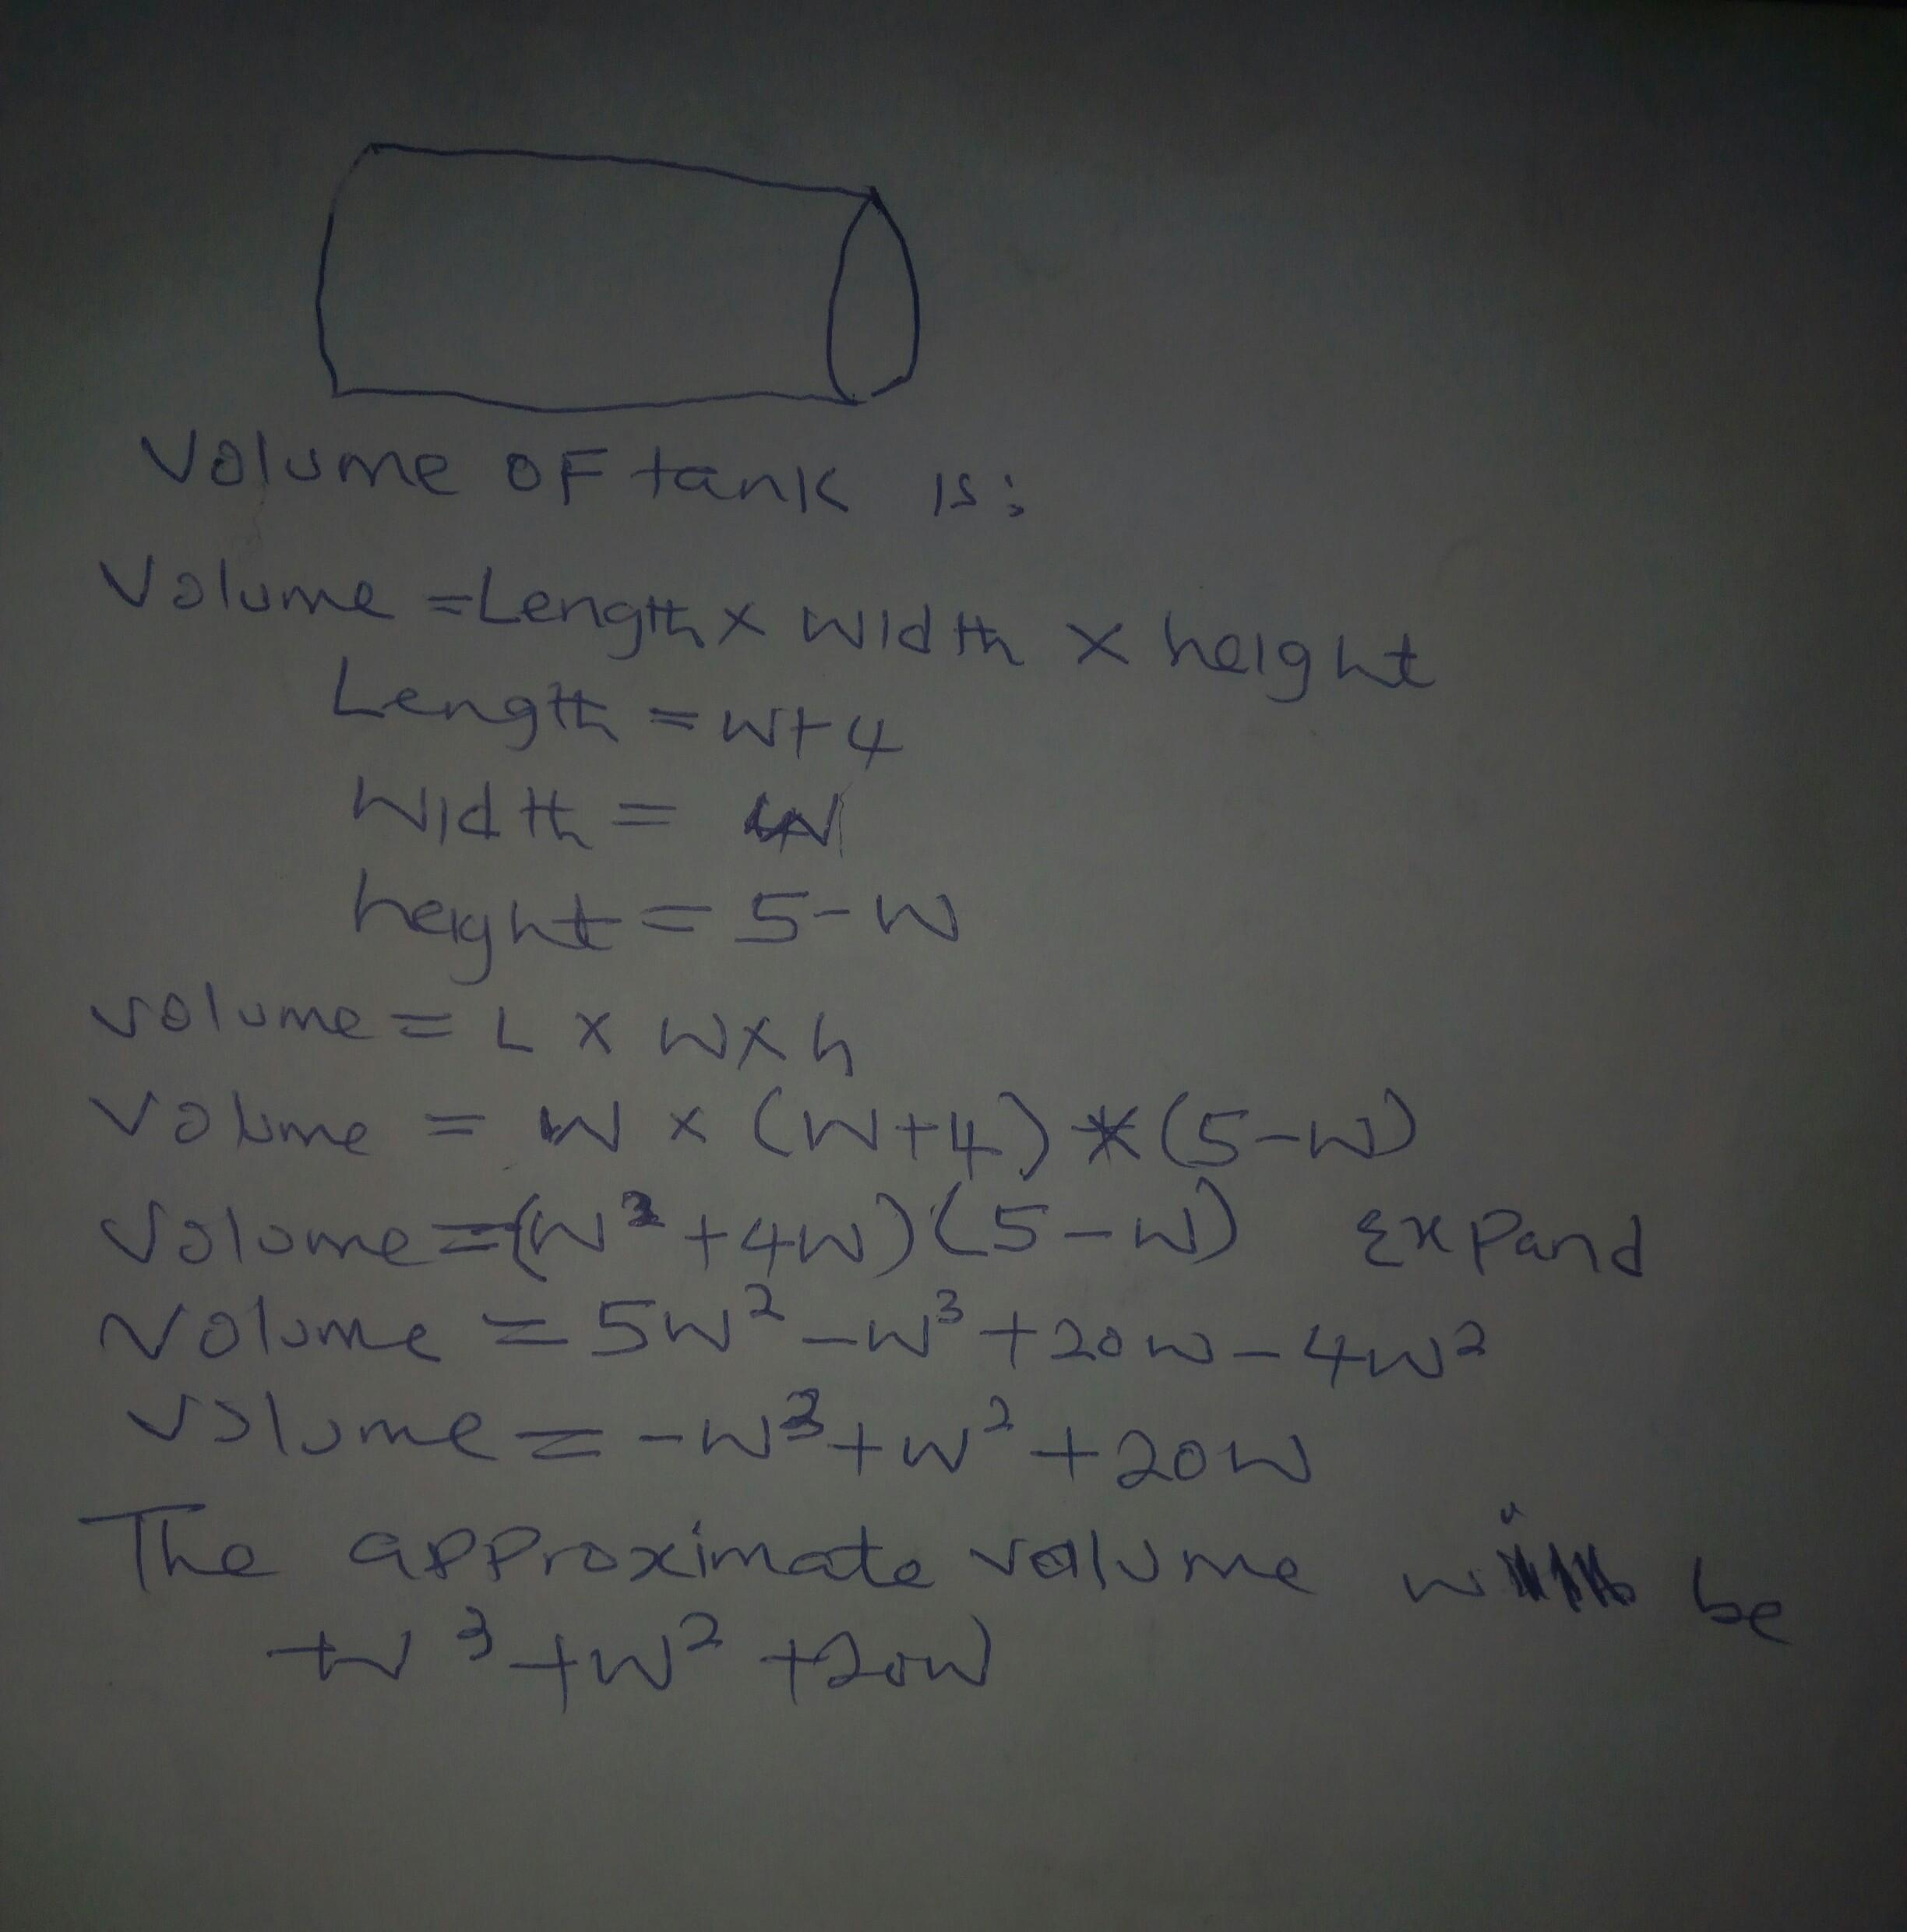 Volume OF tank is:
Volume = Length x width x height
Length = w+4
Width = W
height = 5-w
volume = L x w x h
Volume = W x (W+4) * (5-w)
Volume = (w² +4w)(5-w) Expand
Volume = 5w² -w³ +20w-4w²
volume = -w³+w² +20w
The approximate volume be
-w³ +w² +20w